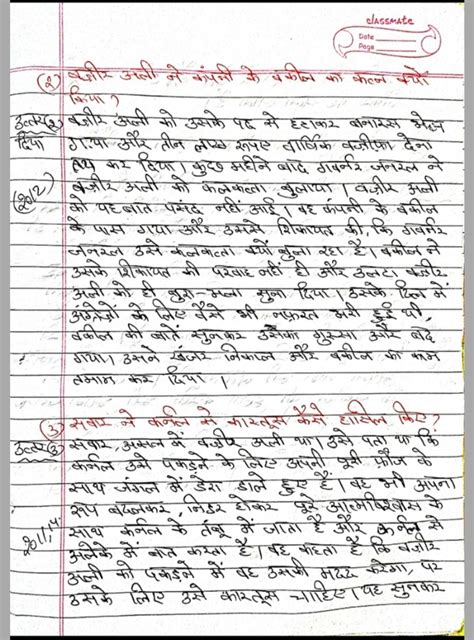 classmate
Date
Page
(2) वज़ीर अली ने कंपनी के वकील का कत्ल क्यों
किया ?
उत्तर(2) वज़ीर अली को उसके पद से हटाकर बनारस भेज
दिया गया और तीन लाख रूपए वार्षिक वज़ीफ़ा देना
तय कर दिया। कुछ महीने बाद गवर्नर जनरल ने
(2012) वज़ीर अली को कलकत्ता बुलाया। वज़ीर अली
को यह बात पसंद नहीं आई। वह कंपनी के वकील
के पास गया और उससे शिकायत की, कि गवर्नर
जनरल उसे कलकत्ता क्यों बुला रहा है। वकील ने
उसके शिकायत की परवाह नहीं की और उलटा वज़ीर
अली को ही बुरा-भला सुना दिया। उसके दिल में
अंग्रेज़ों के लिए वैसे भी नफ़रत भरी हुई थी,
वकील की बातें सुनकर उसका गुस्सा और बढ़
गया। उसने खंजर निकाल और वकील का काम
तमाम कर दिया।
(3) सवार ने कर्नल से कारतूस कैसे हासिल किए?
उत्तर(3) सवार, असल में वज़ीर अली था। उसे पता था कि
कर्नल उसे पकड़ने के लिए अपनी पूरी फ़ौज के
साथ जंगल में डेरा डाले हुए है। वह भी अपना
रूप बदलकर, निडर होकर पूरे आत्मविश्वास के
साथ कर्नल के तंबू में जाता है और कर्नल से
अकेले में बात करता है। वह कहता है कि वज़ीर
अली को पकड़ने में वह उसकी मदद करेगा, पर
उसके लिए उसे कारतूस चाहिए। यह सुनकर